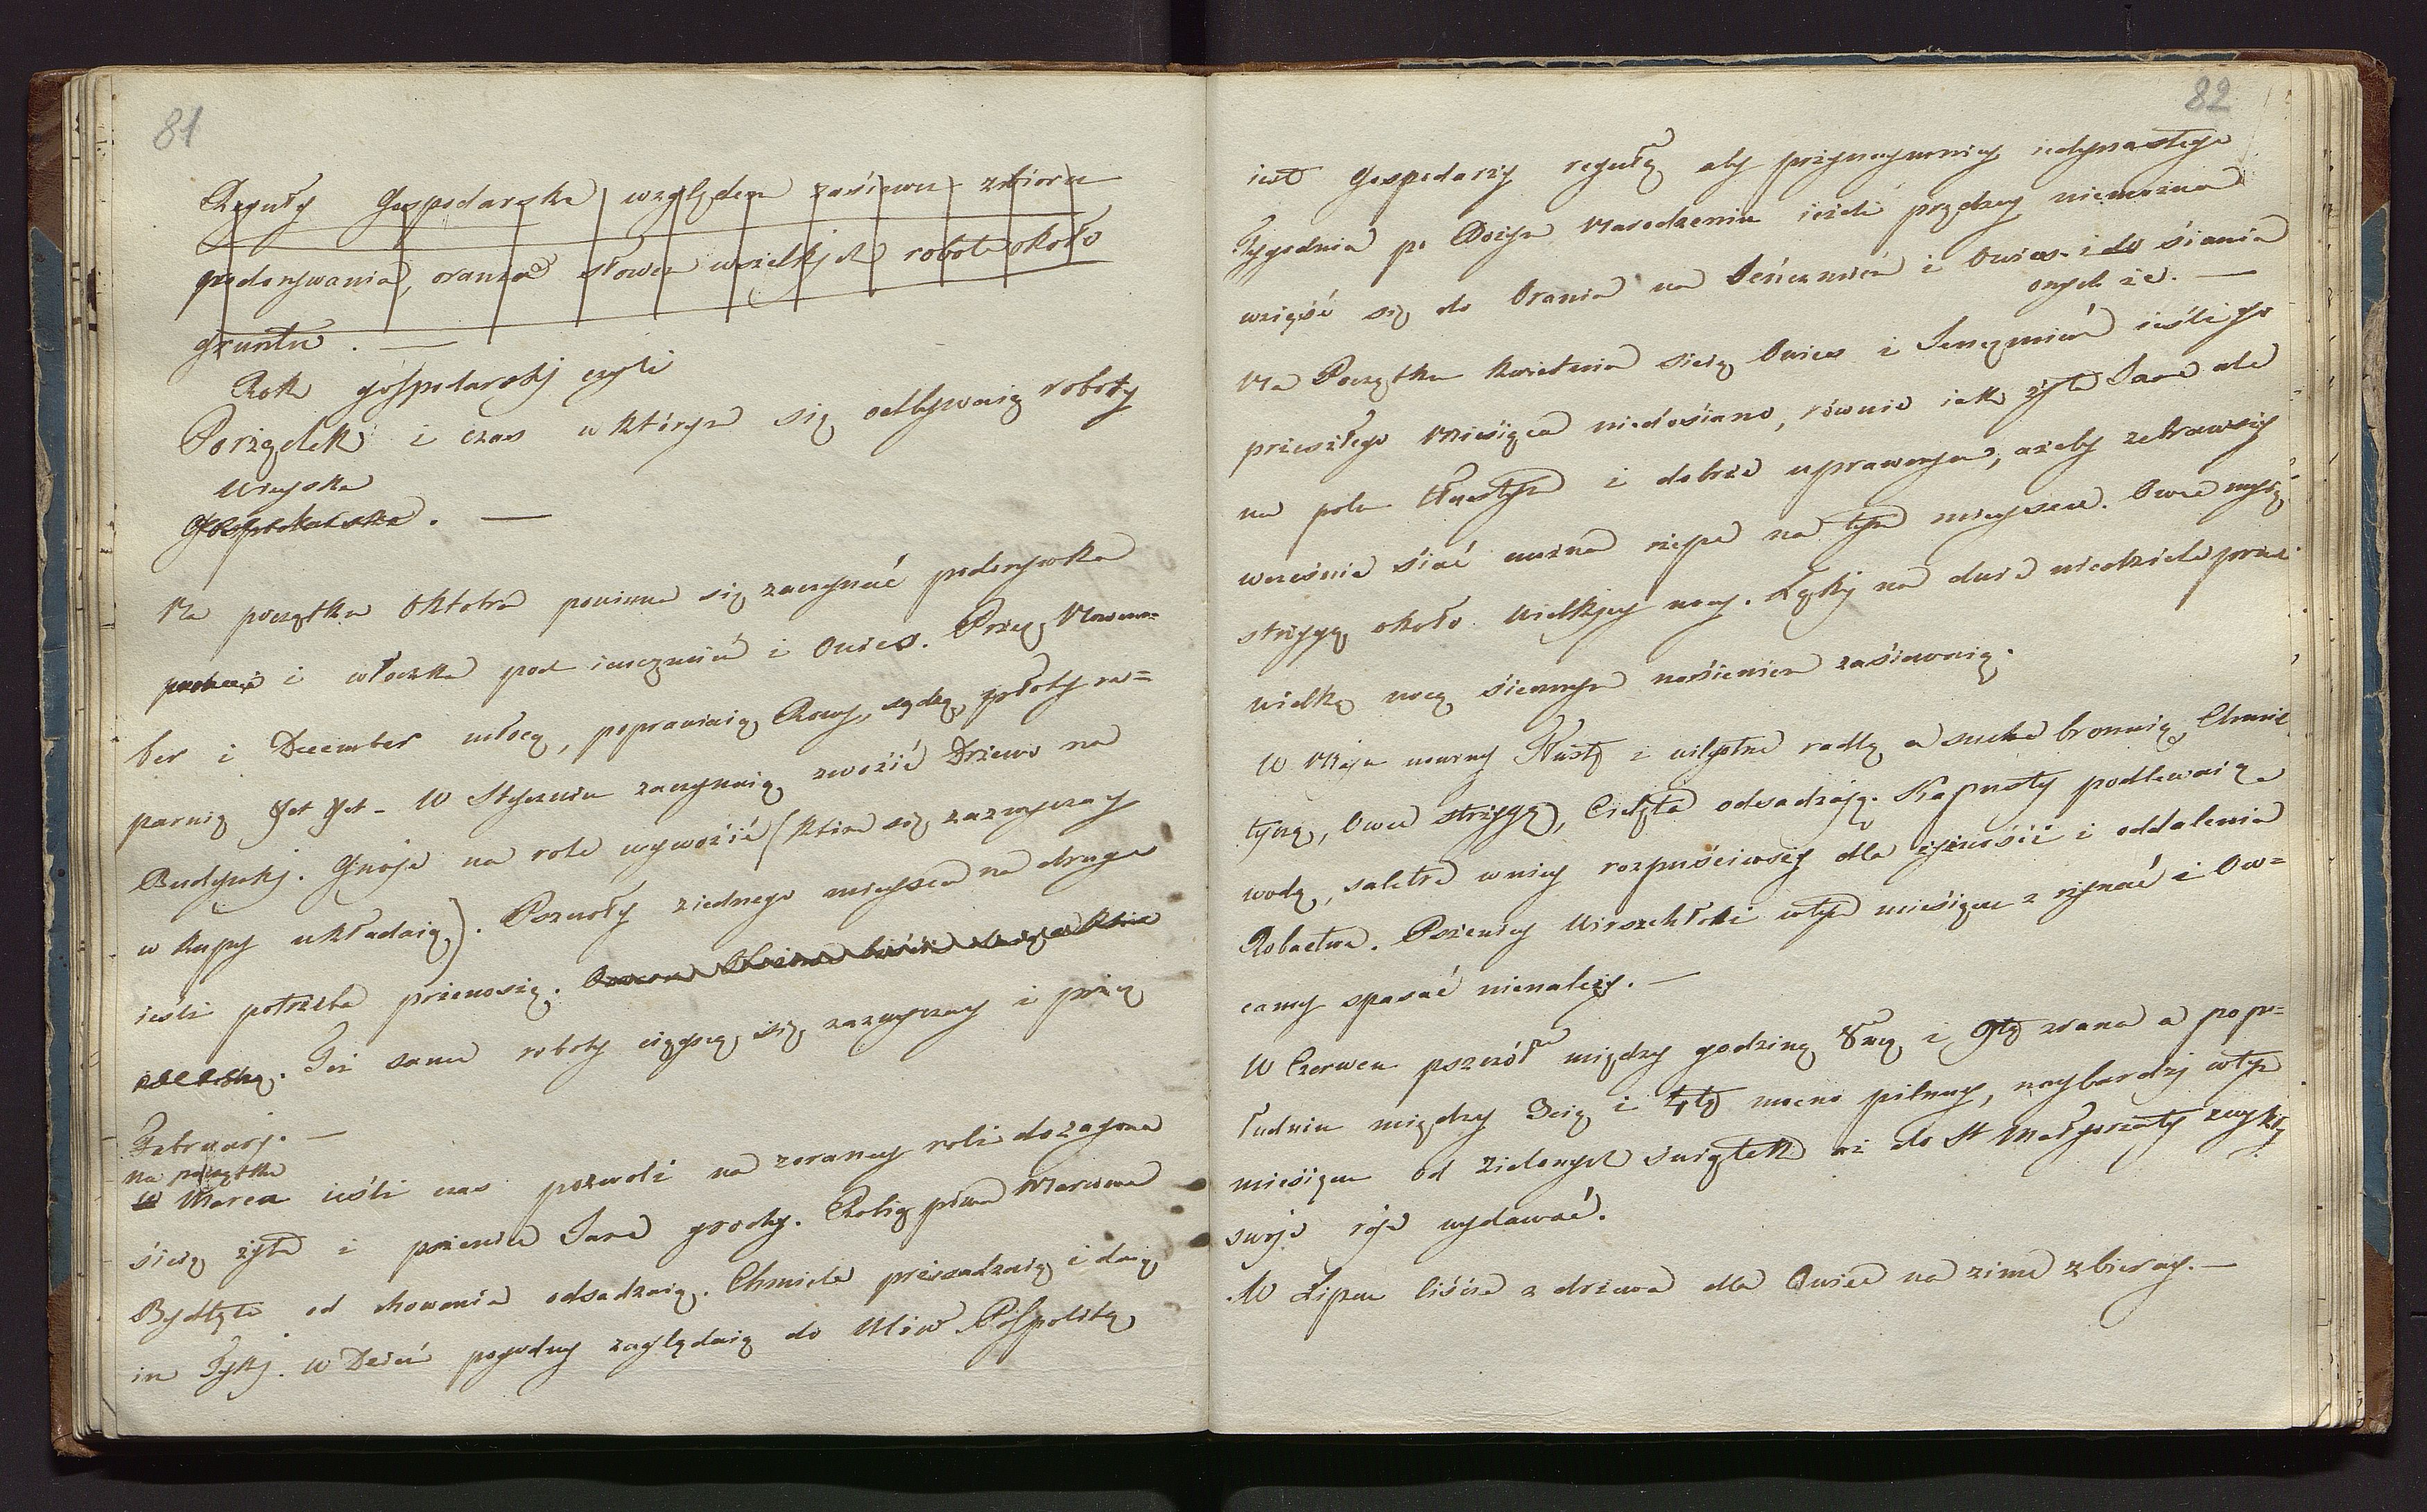 81
Reguły Gospodarske względem zasiewu zbioru
podorywania, orania słowem wszelkich robot około
gruntu. —
Rok gospodarskj czyli
Porządek i czas w którym się odbywaią roboty
wieyskie
Gospodarskie. —
Na początku Oktobra powinna się zaczynać podorywka
i włoczka pod ięczmień i Owies. Przez Novem=
ber i December młocą, poprawiaią Rowy, sądzą płoty na=
parwią &et &et - W Styczniu zaczynaią zwozić Drzewo na
Budynkj. Gnoje na role wywozić (ktore się zazwyczay
w kupy układaią). Pszczoły ziednego mieysca na drugie
ieśli potrzeba przenoszą.
Też same roboty ciągną się zazwyczay i przez
Februarj. —
na początku
W Marca ieśli czas pozwoli na zoraney roli do zagona
sieią żyto i pszenice Jare grochy. Robią piwa Marcowe
Bydlęta od chowania odsadzaią. Chmiele przesadzaią i daią
im Tykj. w Dzień pogodny zaglądaią do Ulów. Pospolitą
82
iest Gospodarzy regułą aby przynaymniey iedynastego
Tygodnia po Bożym Narodzeniu ieżeli prędzey niemożna
wziąść się do Orania na Jęńczmień i Owies i do siania
onych że. —
Na Początku Kwietnia sieią Owies i Jenczmień ieśli go
przeszłego Miesiąca niedosiano, równie iak żyto Jare ale
na polu tłustym i dobrze uprawnym, ażeby zebrawszy
wcześnie siać można rzepe na tym mieyscu. Owce myią
strzygą około Wielkjey nocy. Łąkj na dwie niedziele przed
wielką nocą siennym nasieniem zasiewaią.
W Maju ugory Tłuste i wilgotne radlą a suche bronuią, Chmiel
tyczą, Owce strzygą, Cielęta odsadzają. Kapusty podlewaią
wodą, saletre w niey rozpuściwszy dla żyzności i oddalenia
Robactwa. Pszenicy Wierzchołki wtym miesiącu zrzynać i Ow=
cami spasać nienależy. —
W Czerwcu pszczół między godziną 8mą i 9tą zrana a popo=
łudniu między 3cią i 4tą mocno pilnuy, naybardzj wtym
miesiącu od Zielonych świątek aż do St Małgorzaty zwykły
swoje roje wydawać.
W Lipcu liście z drzewa dla Owiec na zime zbieray. —